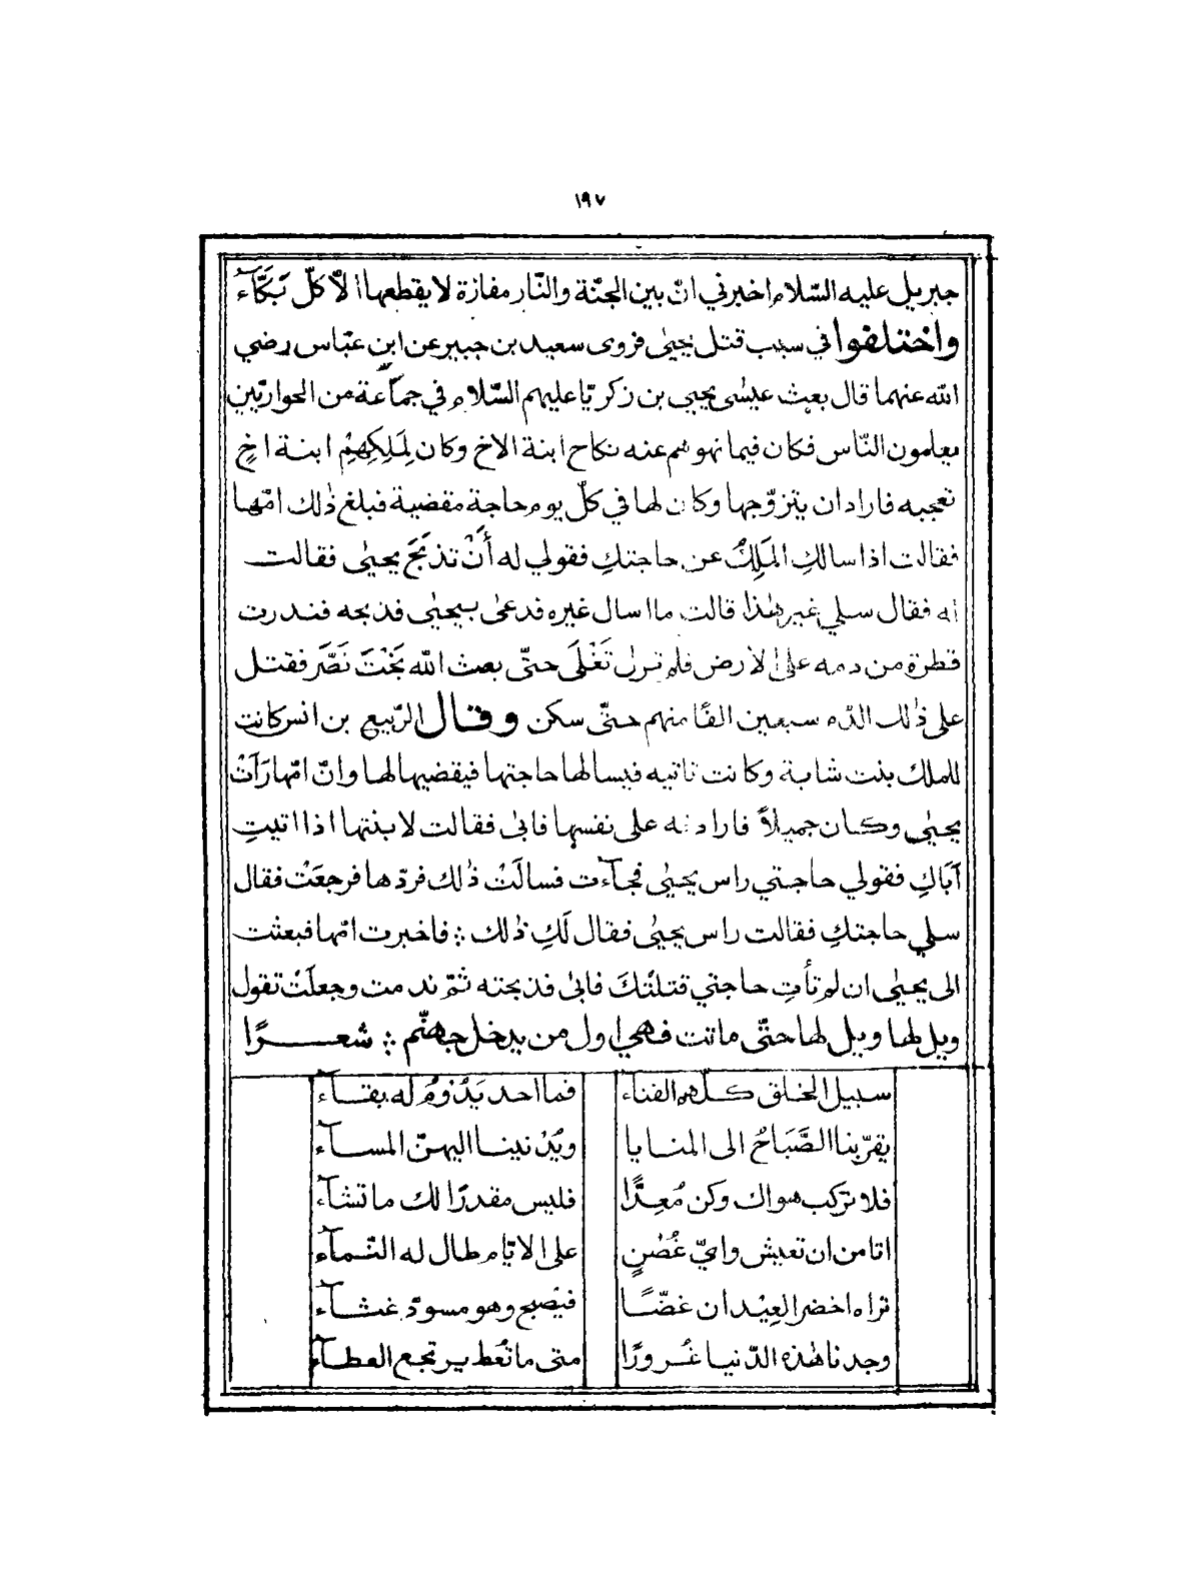 ١٩٧
جبريل عليه السّلام اخبرني انّ بين الجنّة والنّار مفازة لا يقطعها الّا كلّ بَكَّآء
واختلفوا في سبب قتل يحيٰى فروى سعيد بن جبير عن ابن عبّاس رضي
الله عنهما قال بعث عيسٰى يحيى بن زكريّا عليهم السّلام في جماعة من الحواريّين
يعلمون النّاس فكان فيما نهوهم عنه نكاح ابنة الاخ وكان لِمَلِكِهِمْ ابنة اخٍ
تعجبه فاراد ان يتزوّجها وكان لها في كلّ يوم حاجة مقضية فبلغ ذٰلك امّها
فقالت اذا سالكِ المَلِكُ عن حاجتكِ فقولي له أَنْ تذبَحَ يحيٰى فقالت
له فقال سلي غير هٰذا قالت ما اسال غيره فدعىٰ بيحيٰى فذبحه فندرت
قطرة من دمه على الارض فلم تزل تَغْلَى حتّى بعث الله بَخْتَ نَصَّرَ فقتل
على ذٰلك الدّم سبعين الفًا منهم حتّى سكن وقال الرّبيع بن انس كانت
للملك بنت شابة وكانت تاتيه فيسالها حاجتها فيقضيها لها وانّ امّها رَاَتْ
يحيٰى وكان جميلاً فارادته على نفسها فابىٰ فقالت لابنتها اذا اتيتِ
آبَاكِ فقولي حاجتي راس يحيٰى فجآءت فسالَتْ ذٰلك فردّها فرجعَتْ فقال
سلي حاجتكِ فقالت راس يحيٰى فقال لَكِ ذٰلك ؞ فاخبرت امّها فبعثت
الى يحيٰى ان لم تأتِ حاجتي قتلتُكَ فابىٰ فذبحته ثمّ ندمت وجعلَتْ تقول
ويل لها ويل لها حتّى ماتت فهي اول من يدخل جهنّم ؞ شعـــرًا
سبيل الخلق كلّهم الفناء فما احد يَدُوْمُ له بقــآء
يقرّبنا الصَّبَاحُ الى المنايا ويُدْنينا اليهنّ المســآء
فلا تركب هواك وكن مُعِدًّا فليس مقدرًا لك ما تشآء
اتامن ان تعيش وايّ غُصْنٍ على الايّام طال له النّمآء
تراه اخضر العِيْدان غضًّا فيُصبح وهو مسودّ غثــآء
وجدنا هٰذه الدّنيا غُرورًا متى ما تُعْط يرتجع العطــآء